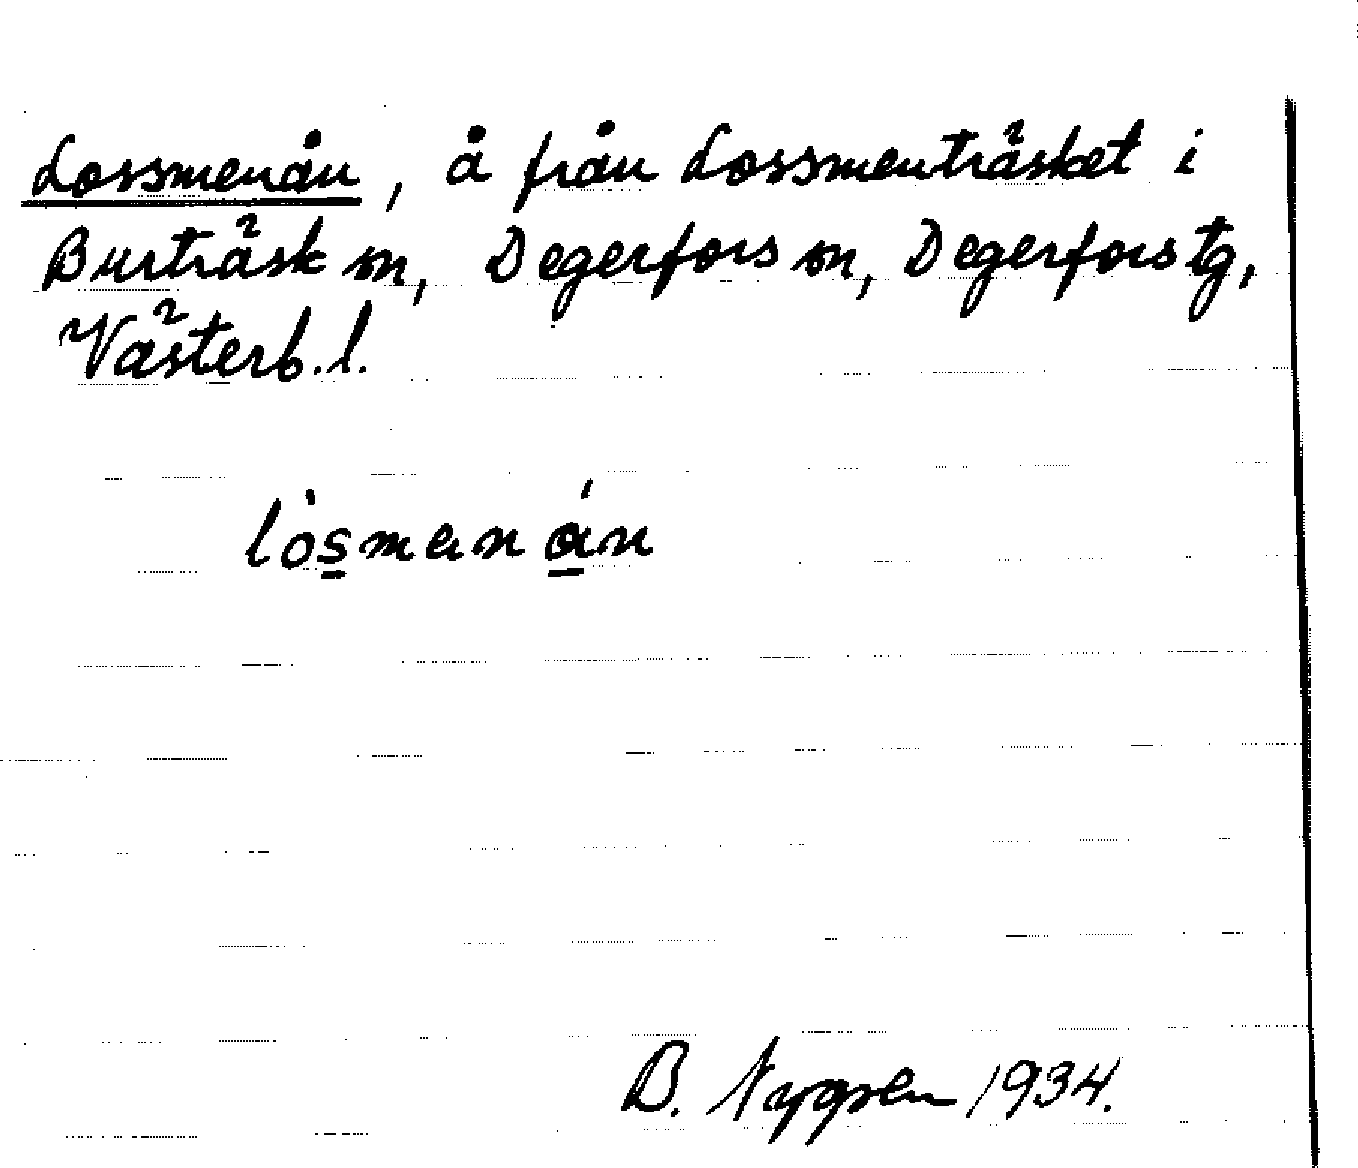 Lossmenån, å från Lossmenträsket i
Burträsk sn, Degerfors sn, Degerfors tg,
Västerb. l.
lòs̲mená̲n
B. Nygren 1934.